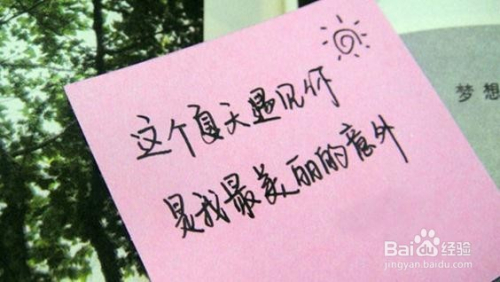 这个夏天遇见你
是我最美丽的意外
梦想
Baidu经验
jingyan.baidu.com